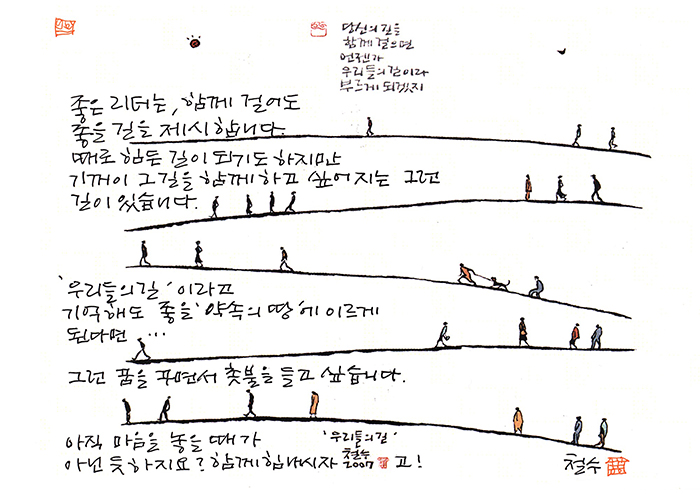 당신의 길을
함께 걸으면
언젠가
우리들의 길이라
부르게 되겠지
좋은 리더는, 함께 걸어도
좋을 길을 제시합니다.
때로 힘든 길이 되기도 하지만
기꺼이 그길을 함께 하고 싶어지는 그런
길이 있습니다.
'우리들의 길' 이라고
기억해도 좋을 '약속의 땅'에 이르게
된다면 ...
그런 꿈을 꾸면서 촛불을 들고 싶습니다.
아직 마음을 놓을 때가
아닌 듯하지요? 함께 합시다 고!
'우리들의 길'
철수
2007
철수